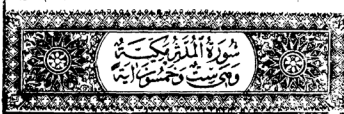 سورة المدثر مكية
وهي ست وخمسون آية